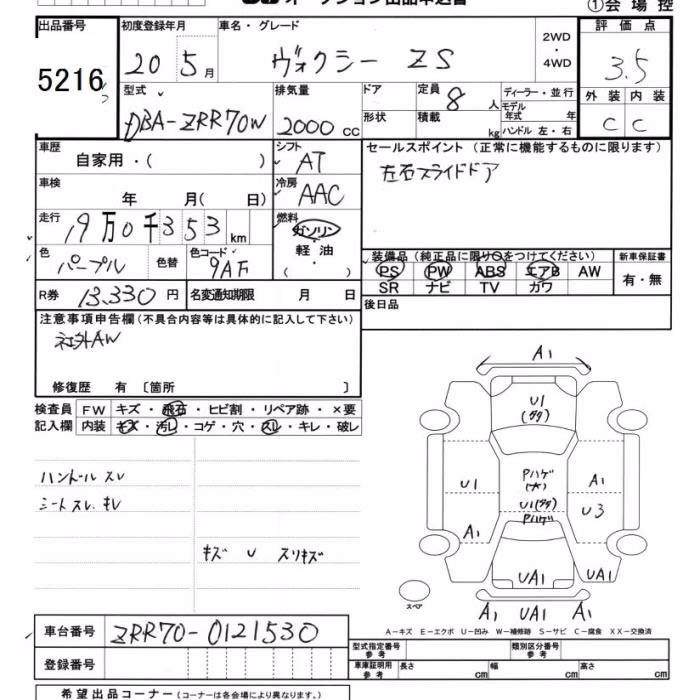 オークション出品申込書
①会場控
出品番号 初度登録年月 車名・グレード 2WD・4WD 評価点
5216 20 5月 ヴォクシー ZS 3.5
型式 排気量 ドア 定員 ディーラー・並行 外装 内装
DBA-ZRR70W 2000cc 8人 モデル年式 年 C C
形状 積載 kg ハンドル 左・右
車歴 シフト セールスポイント(正常に機能するものに限ります)
自家用・( ) AT 左右スライドドア
車検 冷房
年 月( 日) AAC
走行 燃料
19万0千353km ガソリン
軽油
・( )
色 色替 色コード 装備品(純正品に限り○をつけてください) 新車保証書
パープル 9AF PS PW ABS エアB AW 有・無
SR ナビ TV カワ
R券 13,330円 名変通知期限 月 日 後日品
注意事項申告欄(不具合内容等は具体的に記入して下さい)
社外AW
修復歴 有 〔箇所 〕
検査員 FW キズ・飛石・ヒビ割・リペア跡・×要
記入欄 内装 キズ・汚レ・コゲ・穴・スレ・キレ・破レ
ハンドルスレ
シートスレ.キレ
キズ U スリキズ
A1
U1
(多々)
Pハゲ
(大)
U1 A1
U1(多々) U3
Pハゲ
A1
UA1 UA1
スペア A1 UA1 A1
A-キズ E-エクボ U-凹み W-補修跡 S-サビ C-腐食 XX-交換済
車台番号 ZRR70-0121530
型式指定番号 参考 類別区分番号 参考
登録番号 車庫証明用 参考 長さ cm 幅 cm 高さ cm
希望出品コーナー(コーナーは各会場により異なります。)